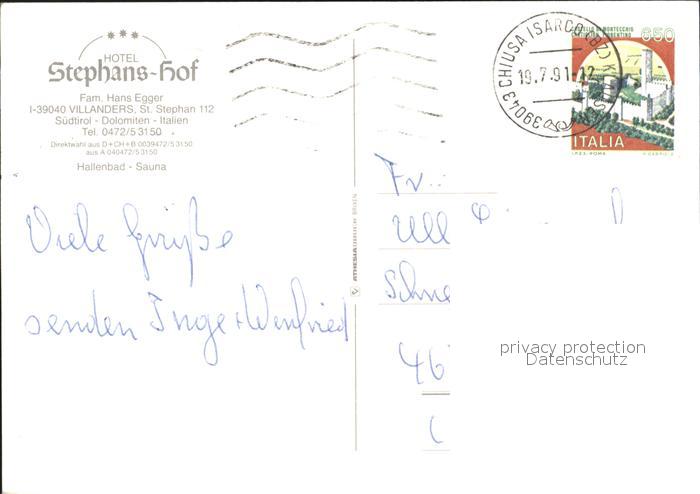 HOTEL
Stephans-Hof
Fam. Hans Egger
I-39040 VILLANDERS, St. Stephan 112
Südtirol - Dolomiten - Italien
Tel. 0472/53150
Direktwahl aus D+CH+B 0039472/53150
aus A 040472/53150
Hallenbad - Sauna
Viele Grüße
senden Inge + Winfried
ATHESIA
39043 CHIUSA ISARCO (BZ)
19.7.91-12
650
ITALIA
I.P.Z.S. ROMA
Fr.
Ull
Schne
46
privacy protection
Datenschutz